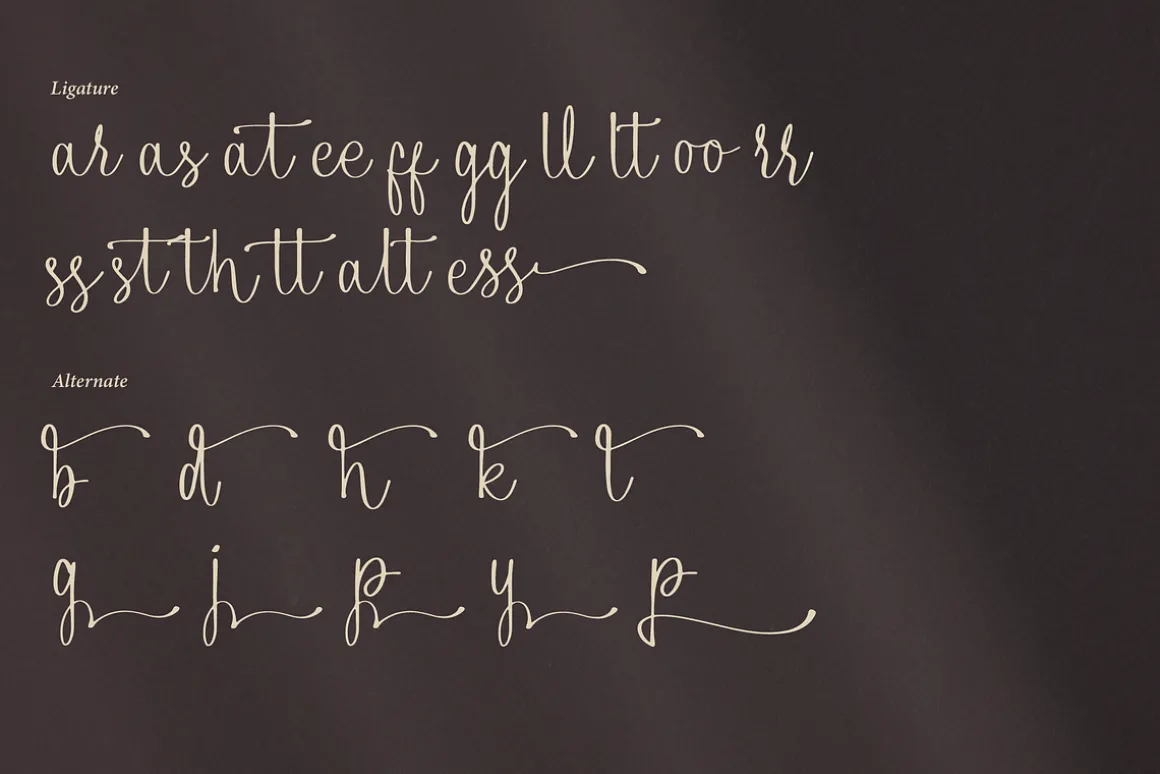 Ligature
ar as at ee ff gg ll lt oo rr
ss st th tt alt ess
Alternate
b d h k l
g j p y p